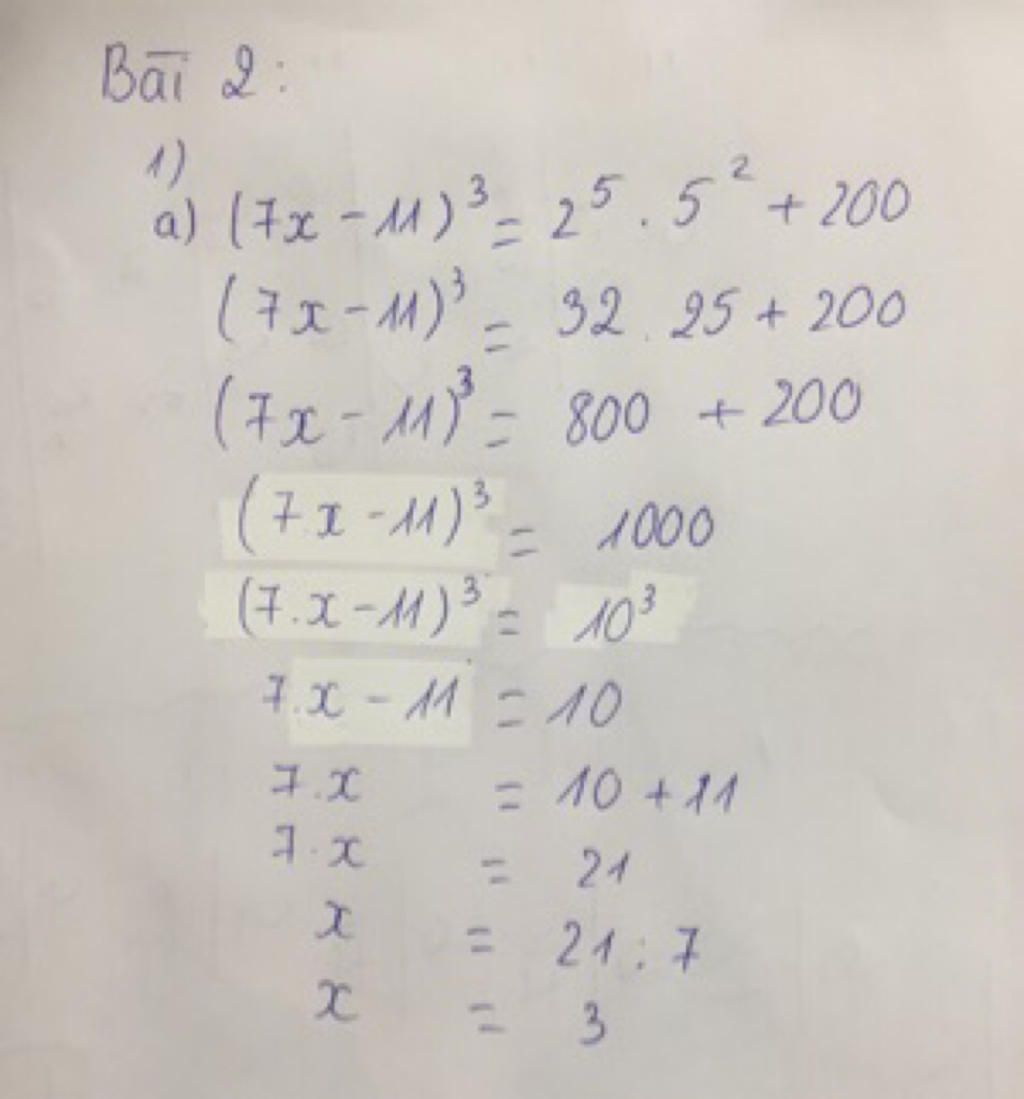 Bài 2:
1)
a) (7x - 11)³ = 2⁵ . 5² + 200
(7x - 11)³ = 32 . 25 + 200
(7x - 11)³ = 800 + 200
(7.x - 11)³ = 1000
(7.x - 11)³ = 10³
7.x - 11 = 10
7.x = 10 + 11
7.x = 21
x = 21 : 7
x = 3